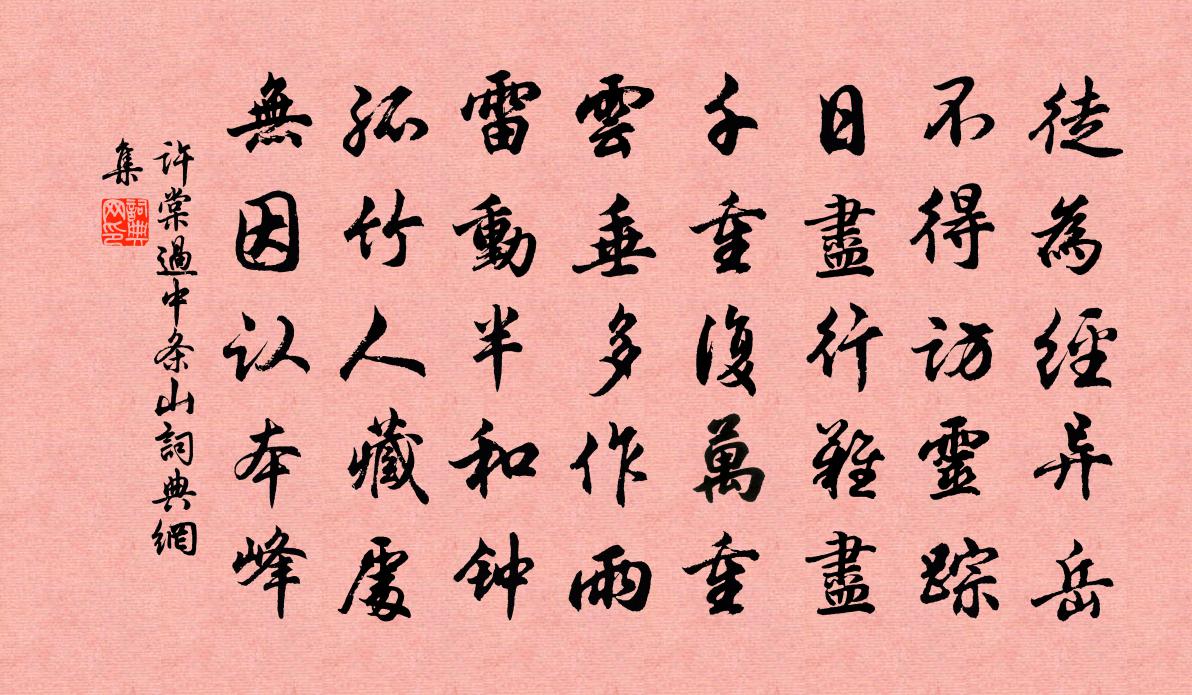 徒為經异岳
不得訪靈踪
日盡行難盡
千重復萬重
雲垂多作雨
雷動半和钟
孤竹人藏處
無因认本峰
許棠過中条山詞典網
集
詞典
网印